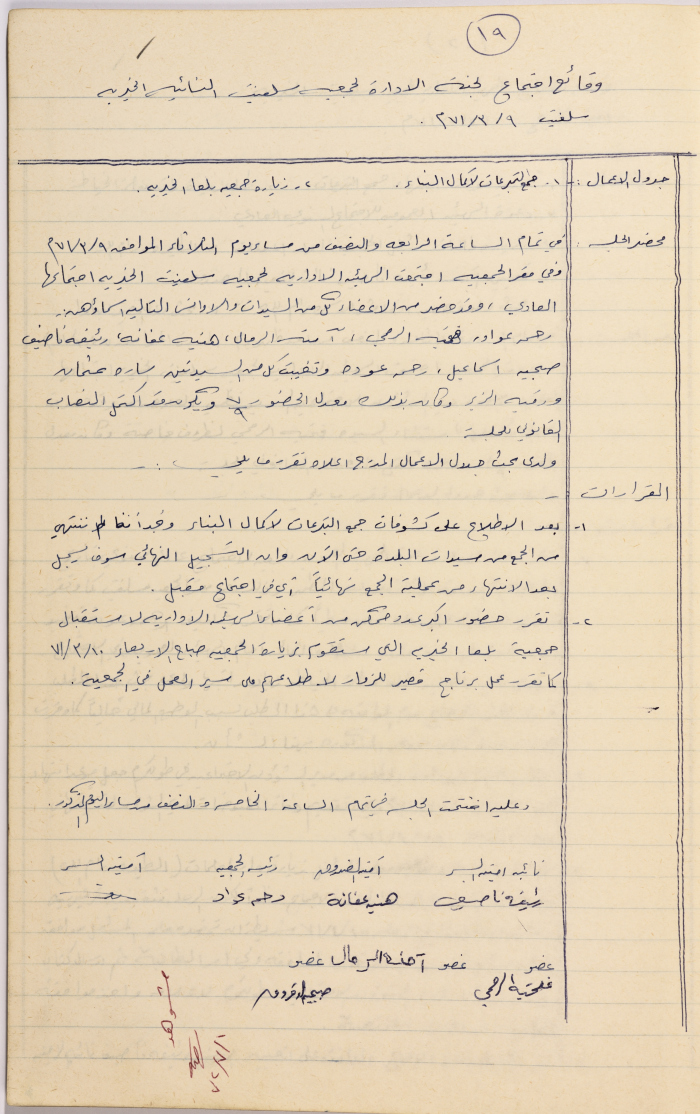 ١٩
وقائع اجتماع لجنة الادارة لجمعية سلفيت النسائيه الخيريه
سلفيت ٩/٣/٩٧١ م.
جدول الاعمال :- ١. جمع التبرعات لاكمال البناء. ٢- زيارة جمعيه بلعا الخيريه.
محضر الجلسه : في تمام الساعة الرابعه والنصف من مساء يوم الثلاثاء الموافقه ٩/٣/٩٧١م
وفي مقر الجمعيه اجتمعت الهيئه الاداريه لجمعيه سلفيت الخيريه اجتماعها
العادي ، وقد حضر من الاعضاء كل من السيدات والاوانس التاليه اسماؤهن :-
رحمه عواد، الرمحي ، آمنه الرمال ، هنيه عفانه ، رئيفه ناصيف
صبحيه اسماعيل ، رحمه عوده وتغيبت كل من السيدتين ساره عثمان
ورقيه الزير وكان بذلك معدل الحضور ٧/٩ ويكون قد اكتمل النصاب
القانوني للجلسة .
ولدى بحث جدول الاعمال المدرج اعلاه تقرر ما يلي :-
القرارات :-
١- بعد الاطلاع على كشوفات جمع التبرعات لاكمال البناء وجد أننا لم ننتهي
من الجمع من سيدات البلدة حتى الآن وان التسجيل النهائي سوف يسجل
بعد الانتهاء من عملية الجمع نهائياً أي في اجتماع مقبل .
٢- تقرر حضور اكبر عدد ممكن من أعضاء الهيئه الاداريه لاستقبال
جمعية بلعا الخيريه التي ستقوم بزيارة الجمعيه صباح الاربعاء ١٠/٣/٧١
كما تقرر عمل برنامج قصير للزوار لاطلاعهم على سير العمل في الجمعية .
وعليه اختتمت الجلسه في تمام الساعة الخامسه والنصف من مساء اليوم المذكور.
نائبه امينه السر أمينه الصندوق رئيسه الجمعيه آمينه السر
رئيفه ناصيف هنيه عفانة رحمه عواد
عضو عضو آمنه الرمال عضو
الرمحي صبحيه
شوهد